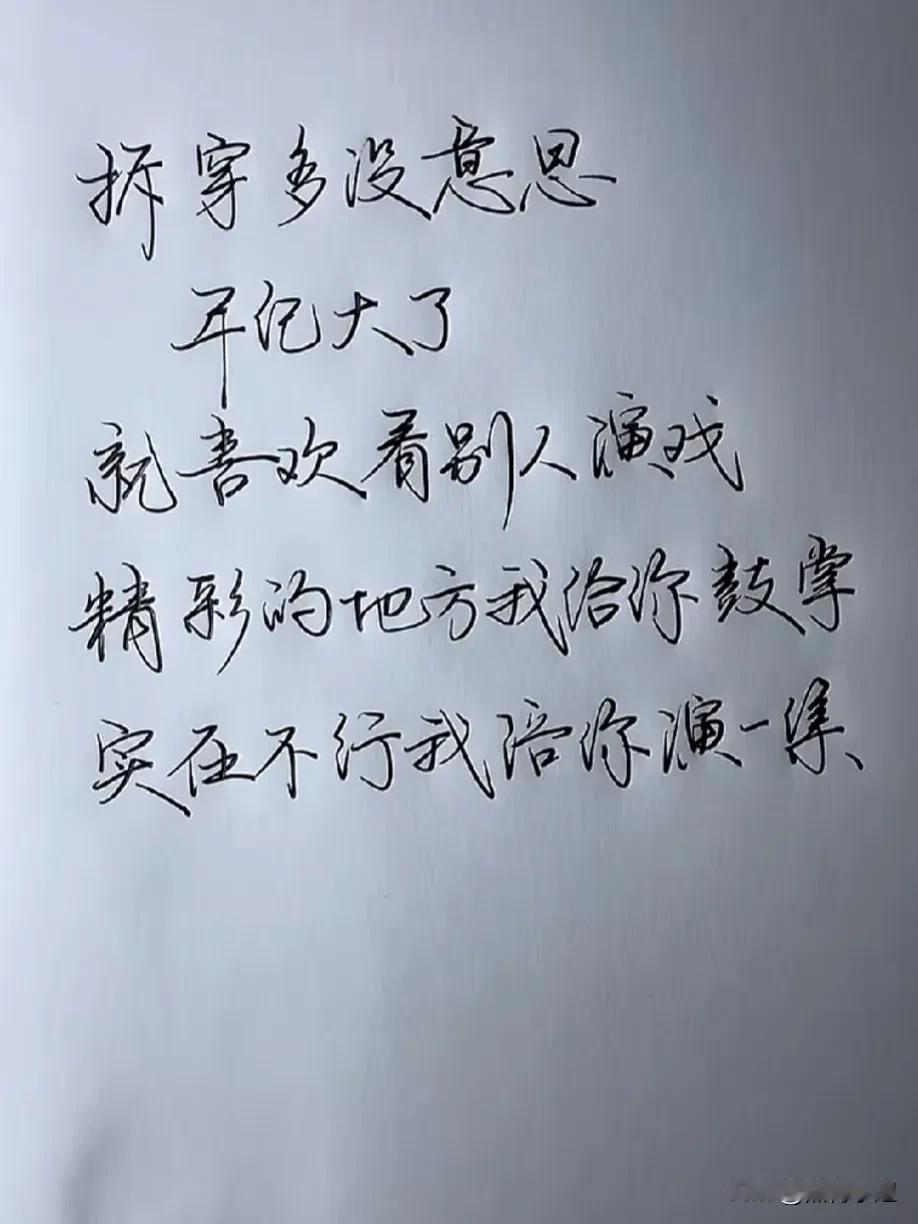 拆穿多没意思
年纪大了
就喜欢看别人演戏
精彩的地方我给你鼓掌
实在不行我陪你演一集